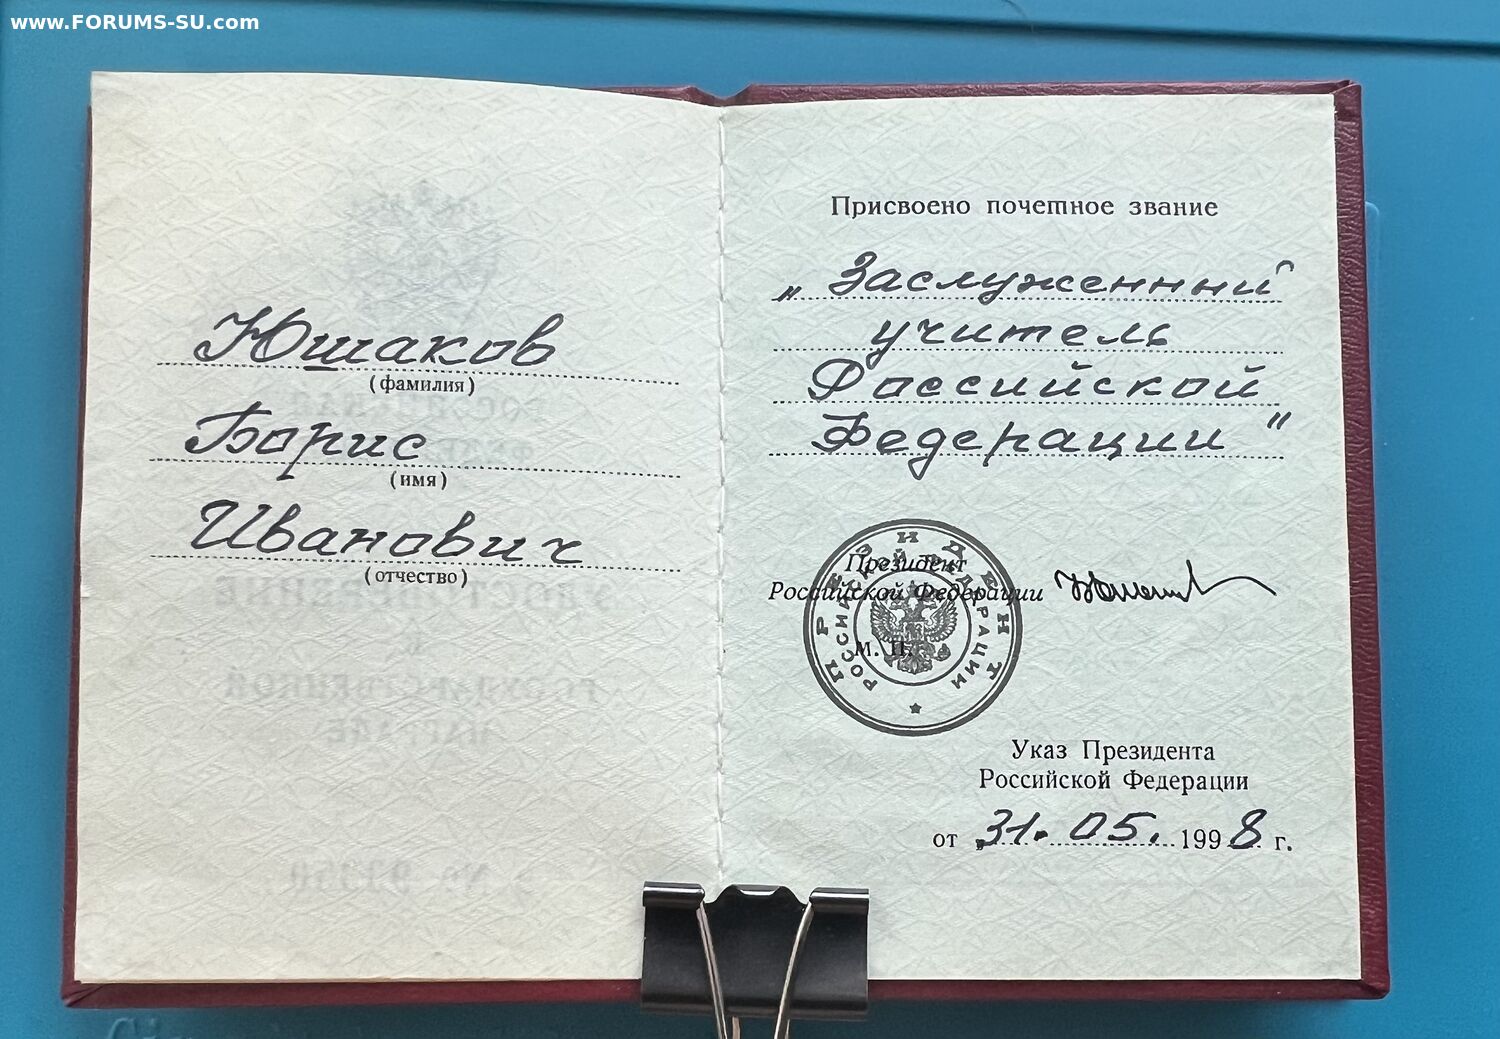 www.FORUMS-SU.com
Юшаков
(фамилия)
Борис
(имя)
Иванович
(отчество)
Присвоено почетное звание
„Заслуженный
учитель
Российской
Федерации"
Президент
Российской Федерации
М. П.
ПРЕЗИДЕНТ
РОССИЙСКОЙ ФЕДЕРАЦИИ
Указ Президента
Российской Федерации
от „31. 05. 1998 г.